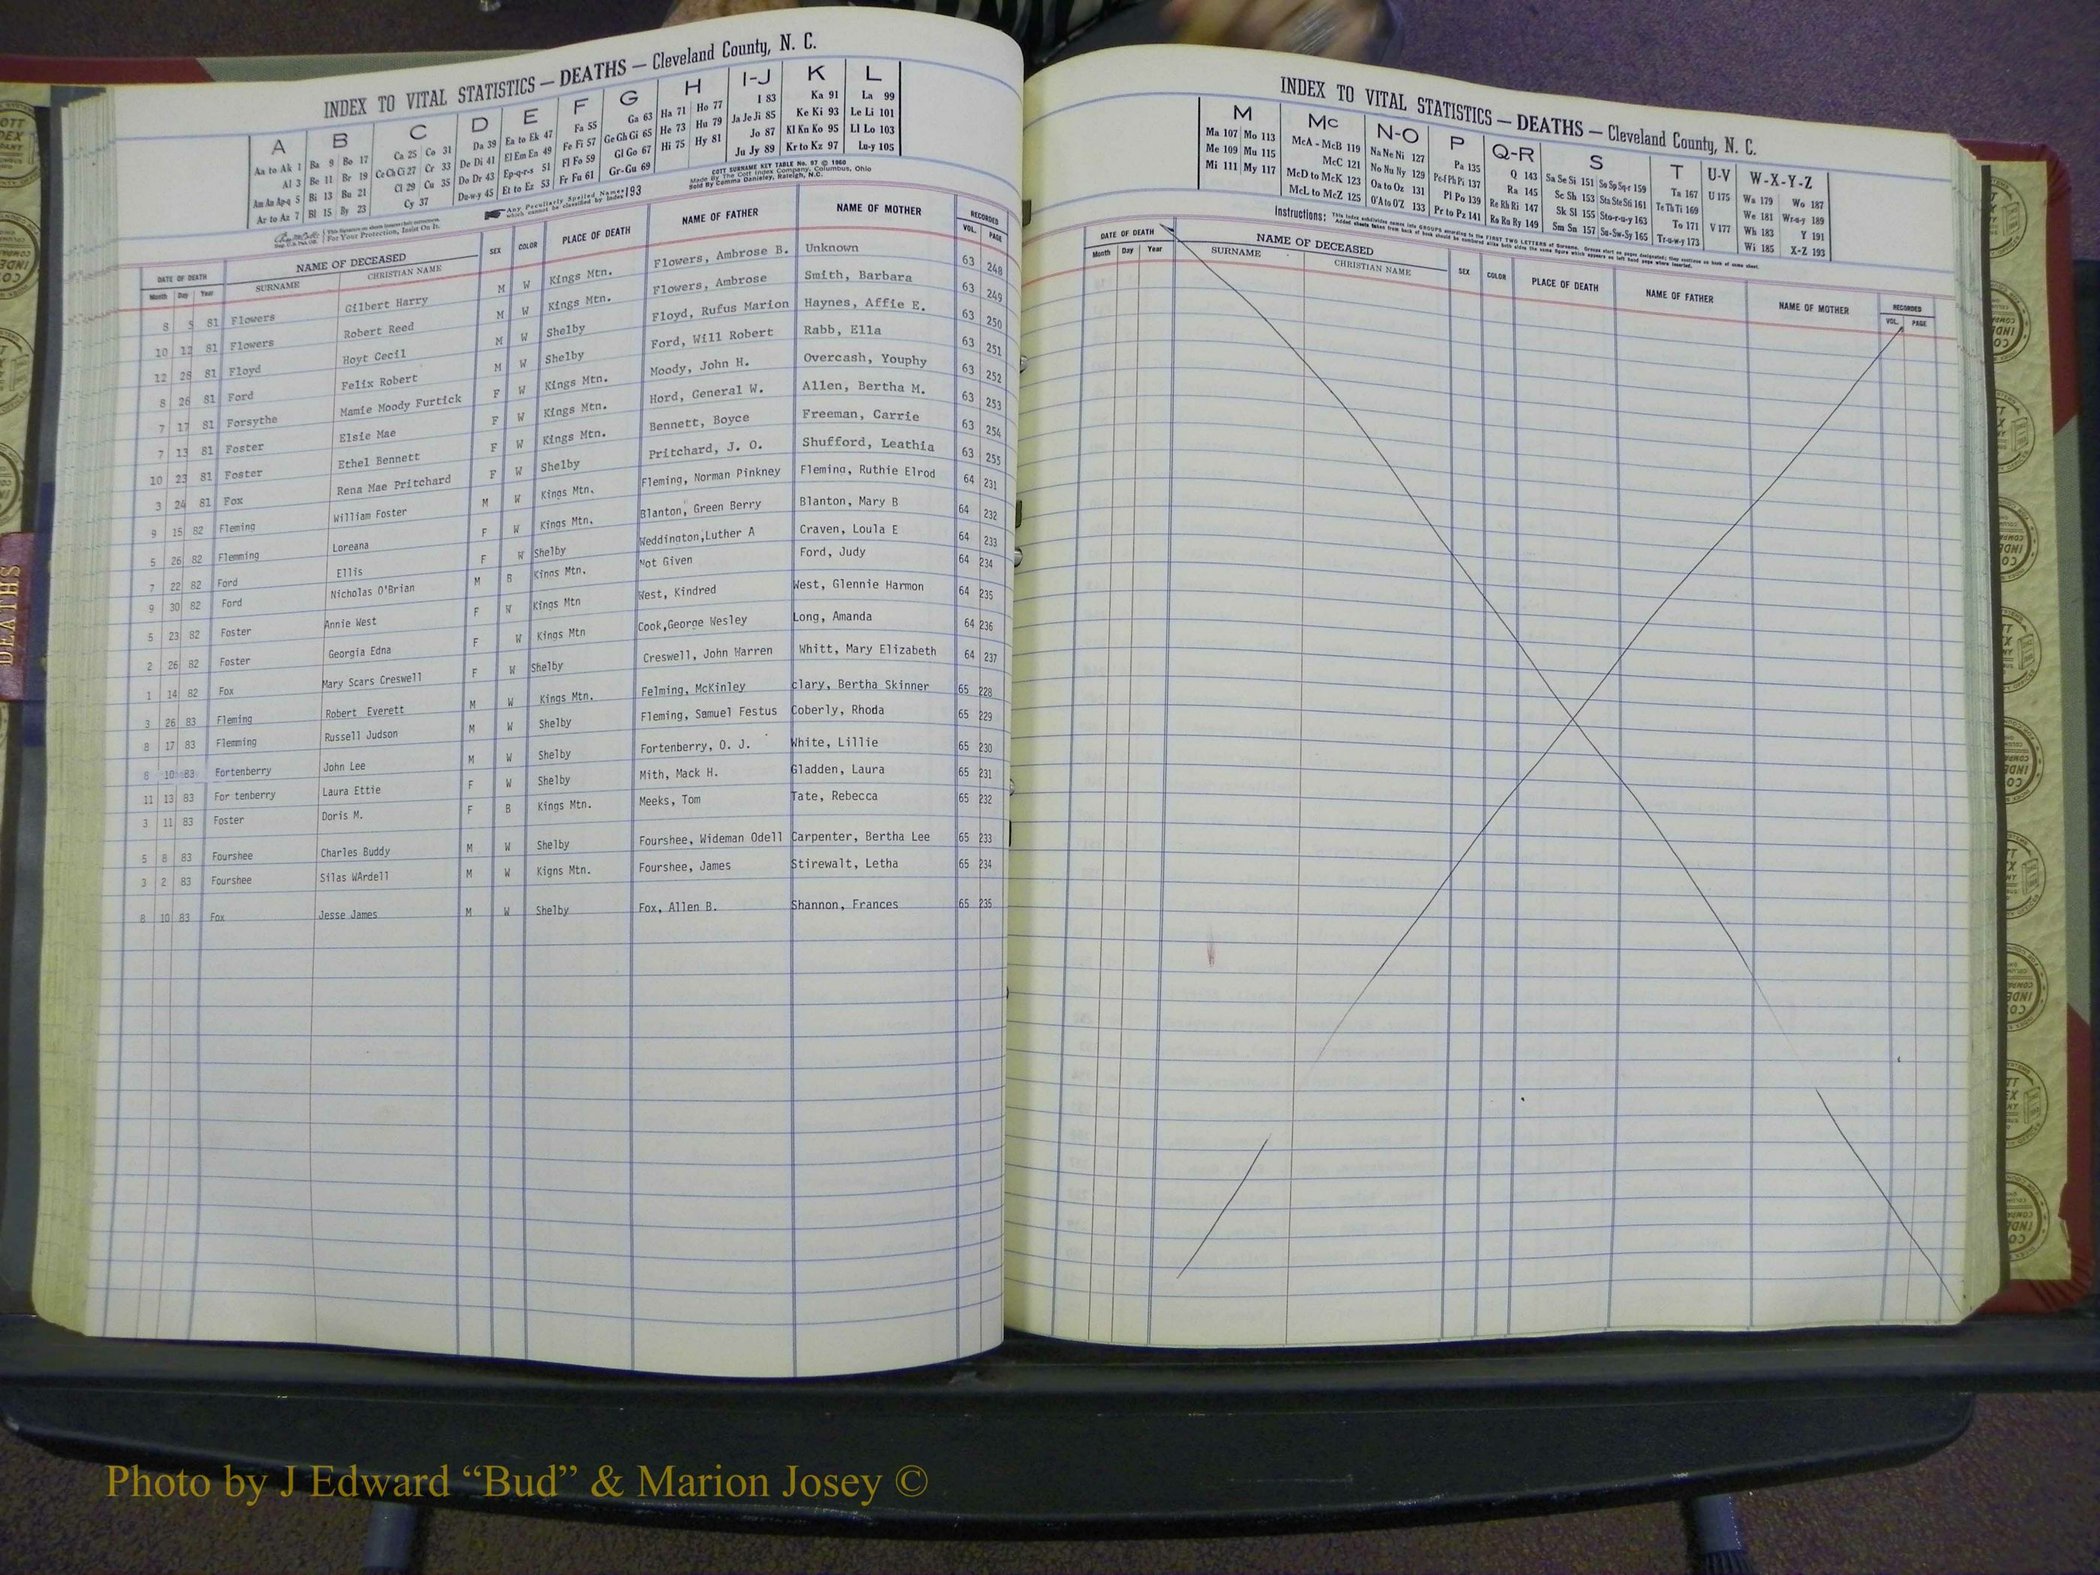 INDEX TO VITAL STATISTICS — DEATHS — Cleveland County, N. C.
A B C D E F G H I-J K L
Aa to Ak 1 Ba 9 Bo 17 Ca 25 Co 31 Da 39 Ea to Ek 47 Fa 55 Ga 63 Ha 71 Ho 77 I 83 Ka 91 La 99
Al 3 Be 11 Br 19 Ce Ch Ci 27 Cr 33 De Di 41 El Em En 49 Fe Fi 57 Ge Gh Gi 65 He 73 Hu 79 Ja Je Ji 85 Ke Ki 93 Le Li 101
Am An Ap-q 5 Bi 13 Bu 21 Cl 29 Cu 35 Do Dr 43 Ep-q-r-s 51 Fl Fo 59 Gl Go 67 Hi 75 Hy 81 Jo 87 Kl Kn Ko 95 Ll Lo 103
Ar to Az 7 Bl 15 By 23 Cy 37 Du-w-y 45 Et to Ez 53 Fr Fu 61 Gr-Gu 69 Ju Jy 89 Kr to Kz 97 Lu-y 105
For Your Protection, Insist On It.
Any Peculiarly Spelled Names which cannot be classified by Index 193
COTT SURNAME KEY TABLE No. 97 © 1960
Made By The Cott Index Company, Columbus, Ohio
Sold By Raleigh, N.C.
DATE OF DEATH NAME OF DECEASED SEX COLOR PLACE OF DEATH NAME OF FATHER NAME OF MOTHER RECORDED
Month Day Year SURNAME CHRISTIAN NAME VOL. PAGE
8 5 81 Flowers Gilbert Harry M W Kings Mtn. Flowers, Ambrose B. Unknown 63 248
10 12 81 Flowers Robert Reed M W Kings Mtn. Flowers, Ambrose Smith, Barbara 63 249
12 28 81 Floyd Hoyt Cecil M W Shelby Floyd, Rufus Marion Haynes, Affie E. 63 250
8 26 81 Ford Felix Robert M W Shelby Ford, Will Robert Rabb, Ella 63 251
7 17 81 Forsythe Mamie Moody Furtick F W Kings Mtn. Moody, John H. Overcash, Youphy 63 252
7 13 81 Foster Elsie Mae F W Kings Mtn. Hord, General W. Allen, Bertha M. 63 253
10 23 81 Foster Ethel Bennett F W Kings Mtn. Bennett, Boyce Freeman, Carrie 63 254
3 24 81 Fox Rena Mae Pritchard F W Shelby Pritchard, J. O. Shufford, Leathia 63 255
9 15 82 Fleming William Foster M W Kings Mtn. Fleming, Norman Pinkney Fleming, Ruthie Elrod 64 231
5 26 82 Flemming Loreana F W Kings Mtn. Blanton, Green Berry Blanton, Mary B 64 232
7 22 82 Ford Ellis F W Shelby Weddington,Luther A Craven, Loula E 64 233
9 30 82 Ford Nicholas O'Brian M B Kings Mtn. Not Given Ford, Judy 64 234
5 23 82 Foster Annie West F W Kings Mtn West, Kindred West, Glennie Harmon 64 235
2 26 82 Foster Georgia Edna F W Kings Mtn Cook,George Wesley Long, Amanda 64 236
1 14 82 Fox Mary Scars Creswell F W Shelby Creswell, John Warren Whitt, Mary Elizabeth 64 237
3 26 83 Fleming Robert Everett M W Kings Mtn. Felming, McKinley clary, Bertha Skinner 65 228
8 17 83 Flemming Russell Judson M W Shelby Fleming, Samuel Festus Coberly, Rhoda 65 229
8 10 83 Fortenberry John Lee M W Shelby Fortenberry, O. J. White, Lillie 65 230
11 13 83 For tenberry Laura Ettie F W Shelby Mith, Mack H. Gladden, Laura 65 231
3 11 83 Foster Doris M. F B Kings Mtn. Meeks, Tom Tate, Rebecca 65 232
5 8 83 Fourshee Charles Buddy M W Shelby Fourshee, Wideman Odell Carpenter, Bertha Lee 65 233
3 2 83 Fourshee Silas WArdell M W Kigns Mtn. Fourshee, James Stirewalt, Letha 65 234
8 10 83 Fox Jesse James M W Shelby Fox, Allen B. Shannon, Frances 65 235
INDEX TO VITAL STATISTICS — DEATHS — Cleveland County, N. C.
M Mc N-O P Q-R S T U-V W-X-Y-Z
Ma 107 Mo 113 McA - McB 119 Na Ne Ni 127 Pa 135 Q 143 Sa Se Si 151 So Sp Sq-r 159 Ta 167 U 175 Wa 179 Wo 187
Me 109 Mu 115 McC 121 No Nu Ny 129 Pe-f Ph Pi 137 Ra 145 Sc Sh 153 Sta Ste Sti 161 Te Th Ti 169 We 181 Wr-u-y 189
Mi 111 My 117 McD to McK 123 Oa to Oz 131 Pl Po 139 Re Rh Ri 147 Sk Sl 155 Sto-r-u-y 163 To 171 V 177 Wh 183 Y 191
McL to McZ 125 O'A to O'Z 133 Pr to Pz 141 Ro Ru Ry 149 Sm Sn 157 Su-Sw-Sy 165 Tr-u-w-y 173 Wi 185 X-Z 193
Instructions: This index subdivides names into GROUPS according to the FIRST TWO LETTERS of Surname. Groups start on pages designated; they continue on back of same sheet.
Added sheets taken from back of book should be numbered alike both sides the same figure which appears on left hand page where inserted.
DATE OF DEATH NAME OF DECEASED SEX COLOR PLACE OF DEATH NAME OF FATHER NAME OF MOTHER RECORDED
Month Day Year SURNAME CHRISTIAN NAME VOL. PAGE
DEATHS
Photo by J Edward “Bud” & Marion Josey ©